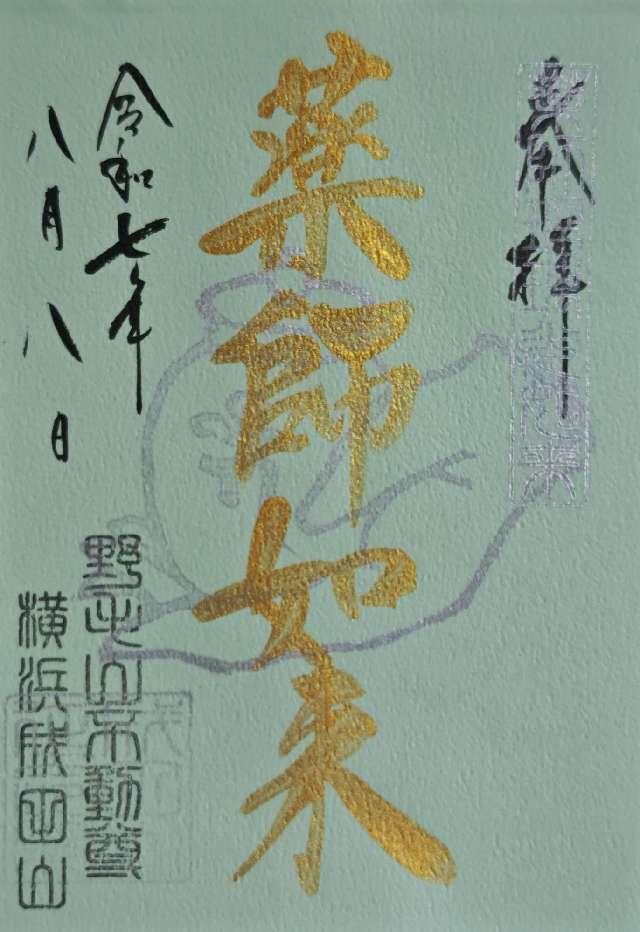 奉拝
薬師如来
令和七年
八月八日
野毛山不動尊
横浜成田山